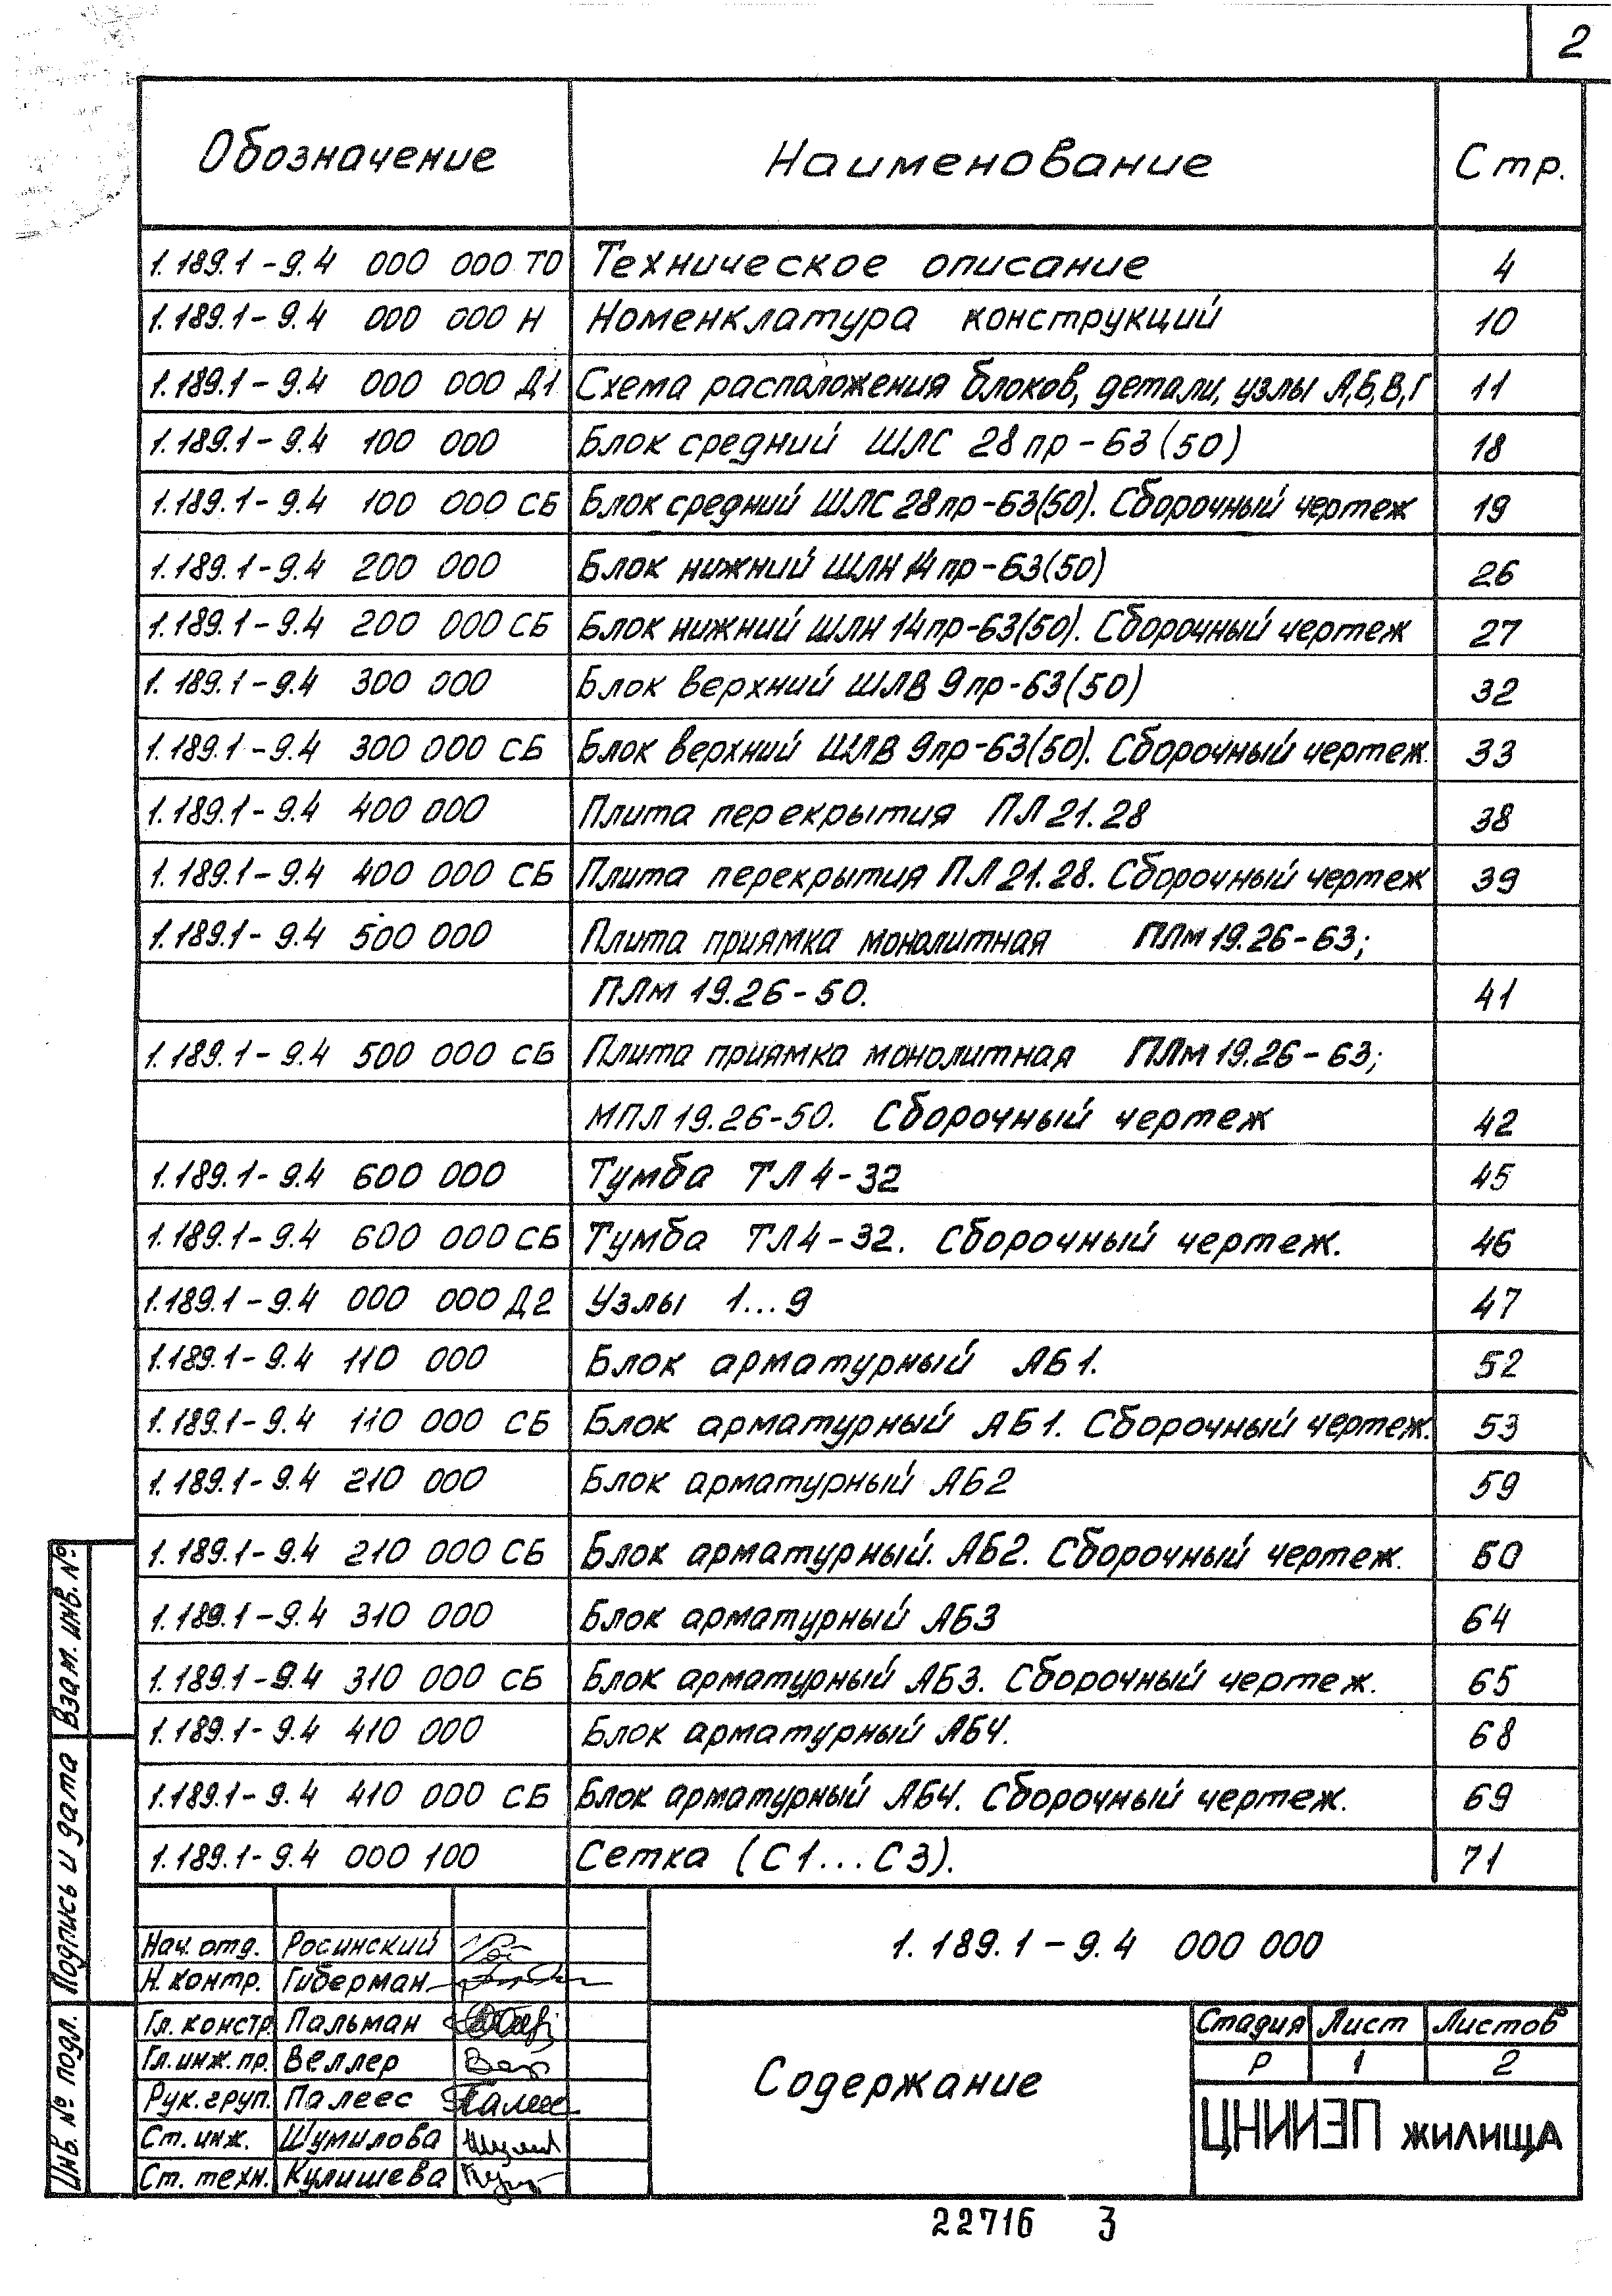 2
Обозначение Наименование Стр.
1.189.1-9.4 000 000 ТО Техническое описание 4
1.189.1-9.4 000 000 Н Номенклатура конструкций 10
1.189.1-9.4 000 000 Д1 Схема расположения блоков, детали, узлы А,Б,В,Г 11
1.189.1-9.4 100 000 Блок средний ШЛС 28пр-63(50) 18
1.189.1-9.4 100 000 СБ Блок средний ШЛС 28пр-63(50). Сборочный чертеж 19
1.189.1-9.4 200 000 Блок нижний ШЛН 14пр-63(50) 26
1.189.1-9.4 200 000 СБ Блок нижний ШЛН 14пр-63(50). Сборочный чертеж 27
1.189.1-9.4 300 000 Блок верхний ШЛВ 9пр-63(50) 32
1.189.1-9.4 300 000 СБ Блок верхний ШЛВ 9пр-63(50). Сборочный чертеж. 33
1.189.1-9.4 400 000 Плита перекрытия ПЛ21.28 38
1.189.1-9.4 400 000 СБ Плита перекрытия ПЛ21.28. Сборочный чертеж 39
1.189.1-9.4 500 000 Плита приямка монолитная ПЛм 19.26-63;
ПЛм 19.26-50. 41
1.189.1-9.4 500 000 СБ Плита приямка монолитная ПЛм 19.26-63;
МПЛ 19.26-50. Сборочный чертеж 42
1.189.1-9.4 600 000 Тумба ТЛ4-32 45
1.189.1-9.4 600 000 СБ Тумба ТЛ4-32. Сборочный чертеж. 46
1.189.1-9.4 000 000 Д2 Узлы 1...9 47
1.189.1-9.4 110 000 Блок арматурный АБ1. 52
1.189.1-9.4 110 000 СБ Блок арматурный АБ1. Сборочный чертеж. 53
1.189.1-9.4 210 000 Блок арматурный АБ2 59
1.189.1-9.4 210 000 СБ Блок арматурный. АБ2. Сборочный чертеж. 60
1.189.1-9.4 310 000 Блок арматурный АБ3 64
1.189.1-9.4 310 000 СБ Блок арматурный АБ3. Сборочный чертеж. 65
1.189.1-9.4 410 000 Блок арматурный АБ4. 68
1.189.1-9.4 410 000 СБ Блок арматурный АБ4. Сборочный чертеж. 69
1.189.1-9.4 000 100 Сетка (С1...С3). 71
Взам. инв. №
Подпись и дата
Инв. № подл.
Нач. отд. Росинский
Н. контр. Гиберман
Гл. констр. Пальман
Гл. инж. пр. Веллер
Рук. груп. Палеес
Ст. инж. Шумилова
Ст. техн. Кулишева
1.189.1-9.4 000 000
Содержание
Стадия Лист Листов
Р 1 2
ЦНИИЭП жилища
22716 3